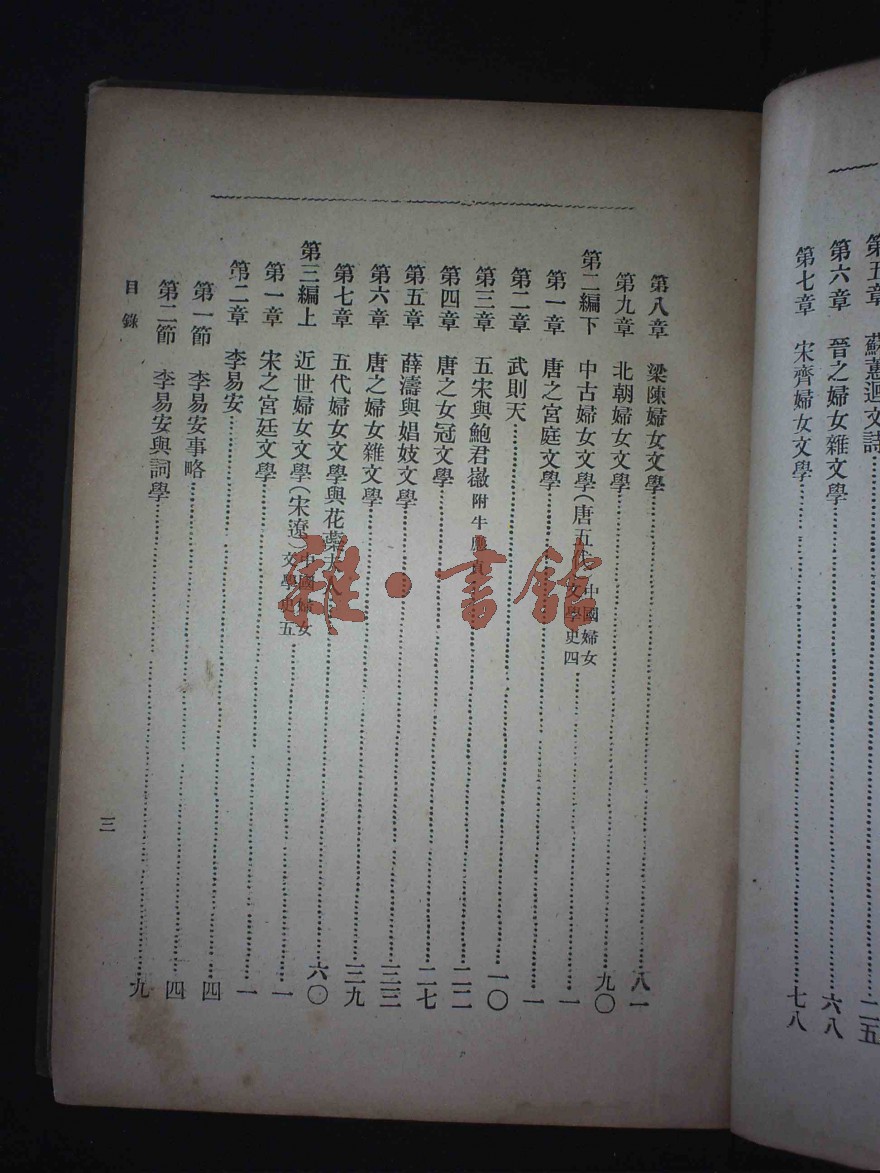 第五章 蘇蕙迴文詩
第六章 晉之婦女雜文學 六八
第七章 宋齊婦女文學 七八
第八章 梁陳婦女文學 八一
第九章 北朝婦女文學 九〇
第二編下 中古婦女文學(唐五代) 中國婦女文學史四 一
第一章 唐之宮庭文學 一
第二章 武則天 一〇
第三章 五宋與鮑君徽 附牛應貞 二二
第四章 唐之女冠文學 二七
第五章 薛濤與娼妓文學 三三
第六章 唐之婦女雜文學 三九
第七章 五代婦女文學與花蕊夫人 六〇
第三編上 近世婦女文學(宋遼) 中國婦女文學史五 一
第一章 宋之宮廷文學 一
第二章 李易安 四
第一節 李易安事略 四
第二節 李易安與詞學 九
目錄
三
雜·書館